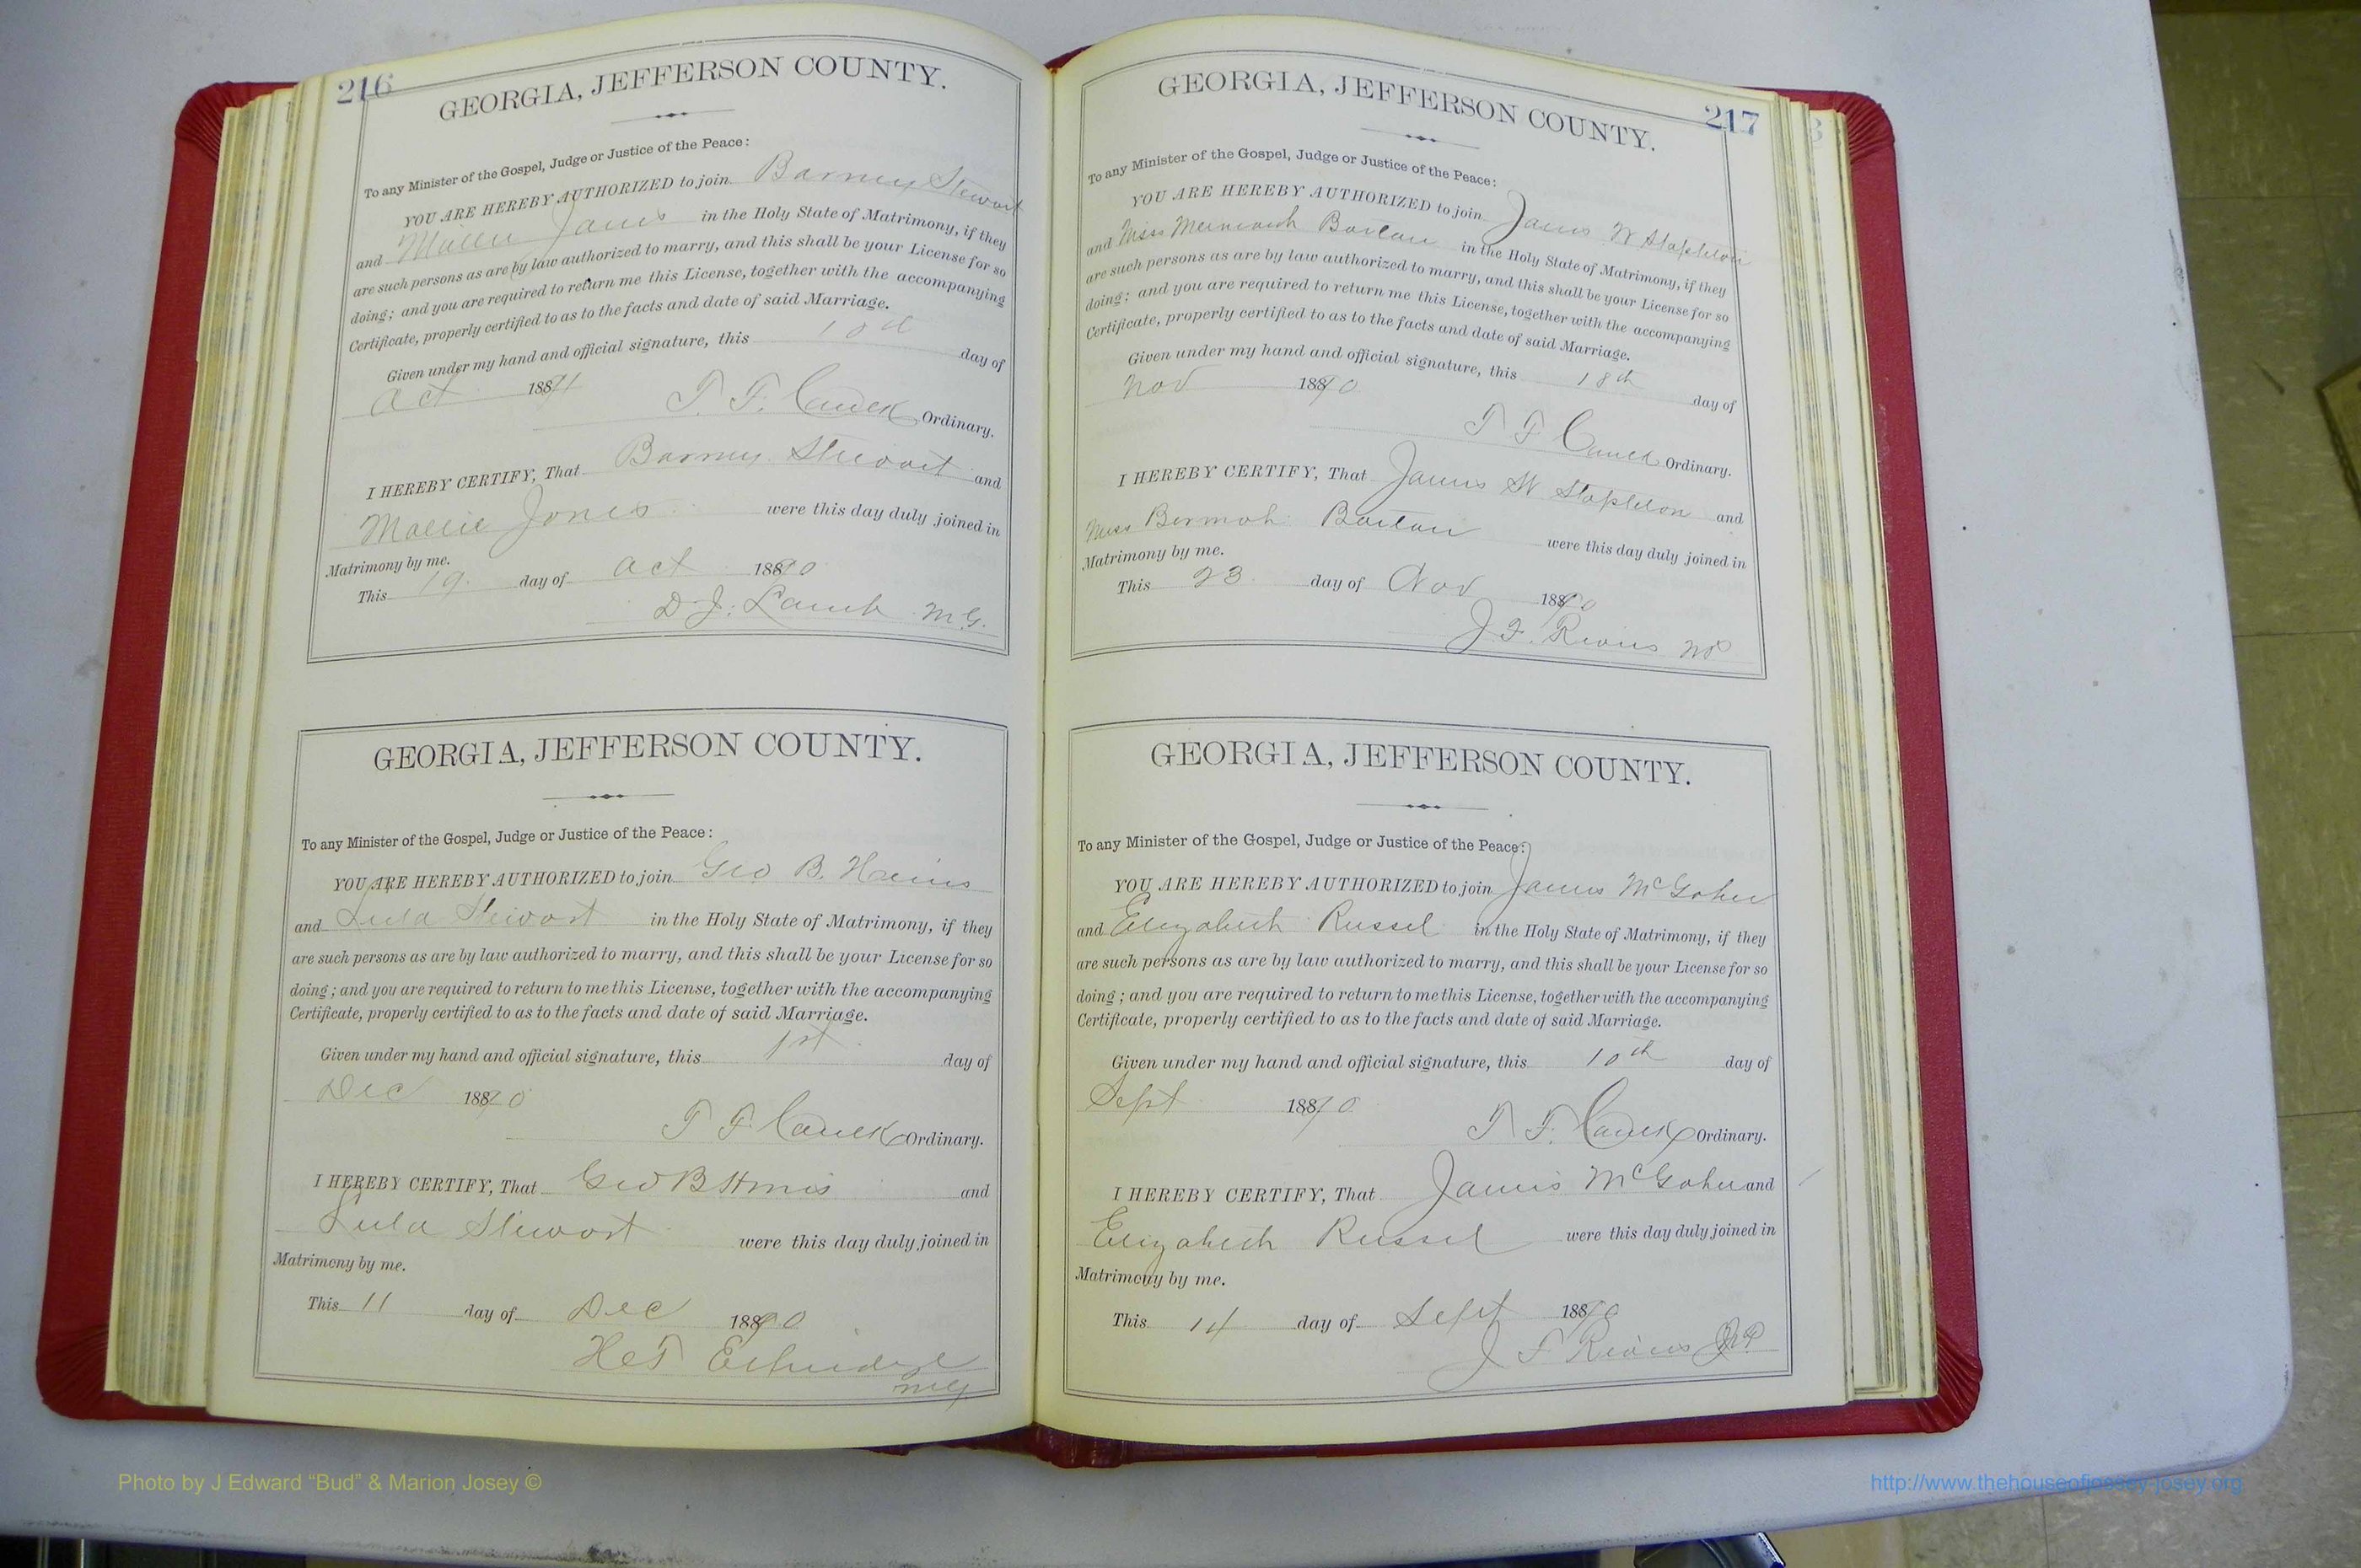 216
GEORGIA, JEFFERSON COUNTY.
To any Minister of the Gospel, Judge or Justice of the Peace:
YOU ARE HEREBY AUTHORIZED to join Barney Stewart
and Mollie Jones in the Holy State of Matrimony, if they
are such persons as are by law authorized to marry, and this shall be your License for so
doing; and you are required to return me this License, together with the accompanying
Certificate, properly certified to as to the facts and date of said Marriage.
Given under my hand and official signature, this day of
Oct 188
T. F. Caulk Ordinary.
I HEREBY CERTIFY, That Barney Stewart and
Mollie Jones were this day duly joined in
Matrimony by me.
This 19. day of Oct 18890
D. J. Lamb M.G.
GEORGIA, JEFFERSON COUNTY.
To any Minister of the Gospel, Judge or Justice of the Peace:
YOU ARE HEREBY AUTHORIZED to join Geo B.
and Lula Stewart in the Holy State of Matrimony, if they
are such persons as are by law authorized to marry, and this shall be your License for so
doing; and you are required to return to me this License, together with the accompanying
Certificate, properly certified to as to the facts and date of said Marriage.
Given under my hand and official signature, this 1st day of
Dec 18890
T F Caulk Ordinary.
I HEREBY CERTIFY, That Geo B and
Lula Stewart were this day duly joined in
Matrimony by me.
This 11 day of Dec 18890
Ethridge
MG
217
GEORGIA, JEFFERSON COUNTY.
To any Minister of the Gospel, Judge or Justice of the Peace:
YOU ARE HEREBY AUTHORIZED to join James W Stapleton
and Miss in the Holy State of Matrimony, if they
are such persons as are by law authorized to marry, and this shall be your License for so
doing; and you are required to return me this License, together with the accompanying
Certificate, properly certified to as to the facts and date of said Marriage.
Given under my hand and official signature, this 18th day of
Nov 18890
T F Caulk Ordinary.
I HEREBY CERTIFY, That James W Stapleton and
Miss were this day duly joined in
Matrimony by me.
This 23 day of Nov 18890
J. F. Rivers
GEORGIA, JEFFERSON COUNTY.
To any Minister of the Gospel, Judge or Justice of the Peace:
YOU ARE HEREBY AUTHORIZED to join James McGaher
and Elizabeth Russel in the Holy State of Matrimony, if they
are such persons as are by law authorized to marry, and this shall be your License for so
doing; and you are required to return to me this License, together with the accompanying
Certificate, properly certified to as to the facts and date of said Marriage.
Given under my hand and official signature, this 10th day of
Sept 18890
T. F. Caulk Ordinary.
I HEREBY CERTIFY, That James McGaher and
Elizabeth Russel were this day duly joined in
Matrimony by me.
This 14 day of Sept 18890
J F Rivers
Photo by J Edward “Bud” & Marion Josey ©
http://www.thehouseofjossey-josey.org